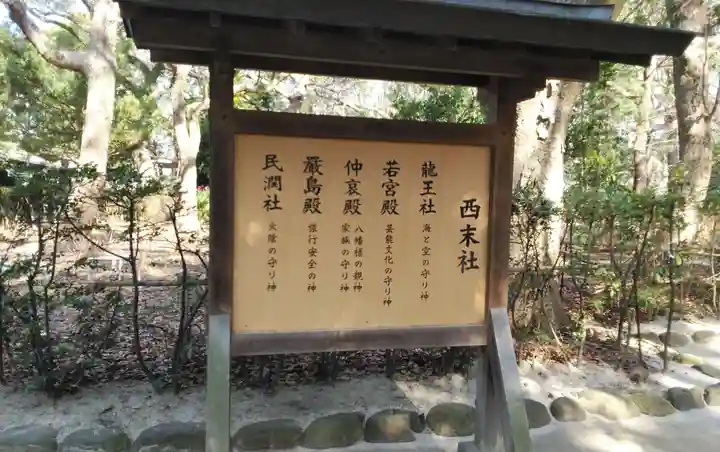 西末社
龍王社 海と空の守り神
若宮殿 芸能文化の守り神
仲哀殿 八幡様の親神 家族の守り神
厳島殿 旅行安全の神
民潤社 火除の守り神